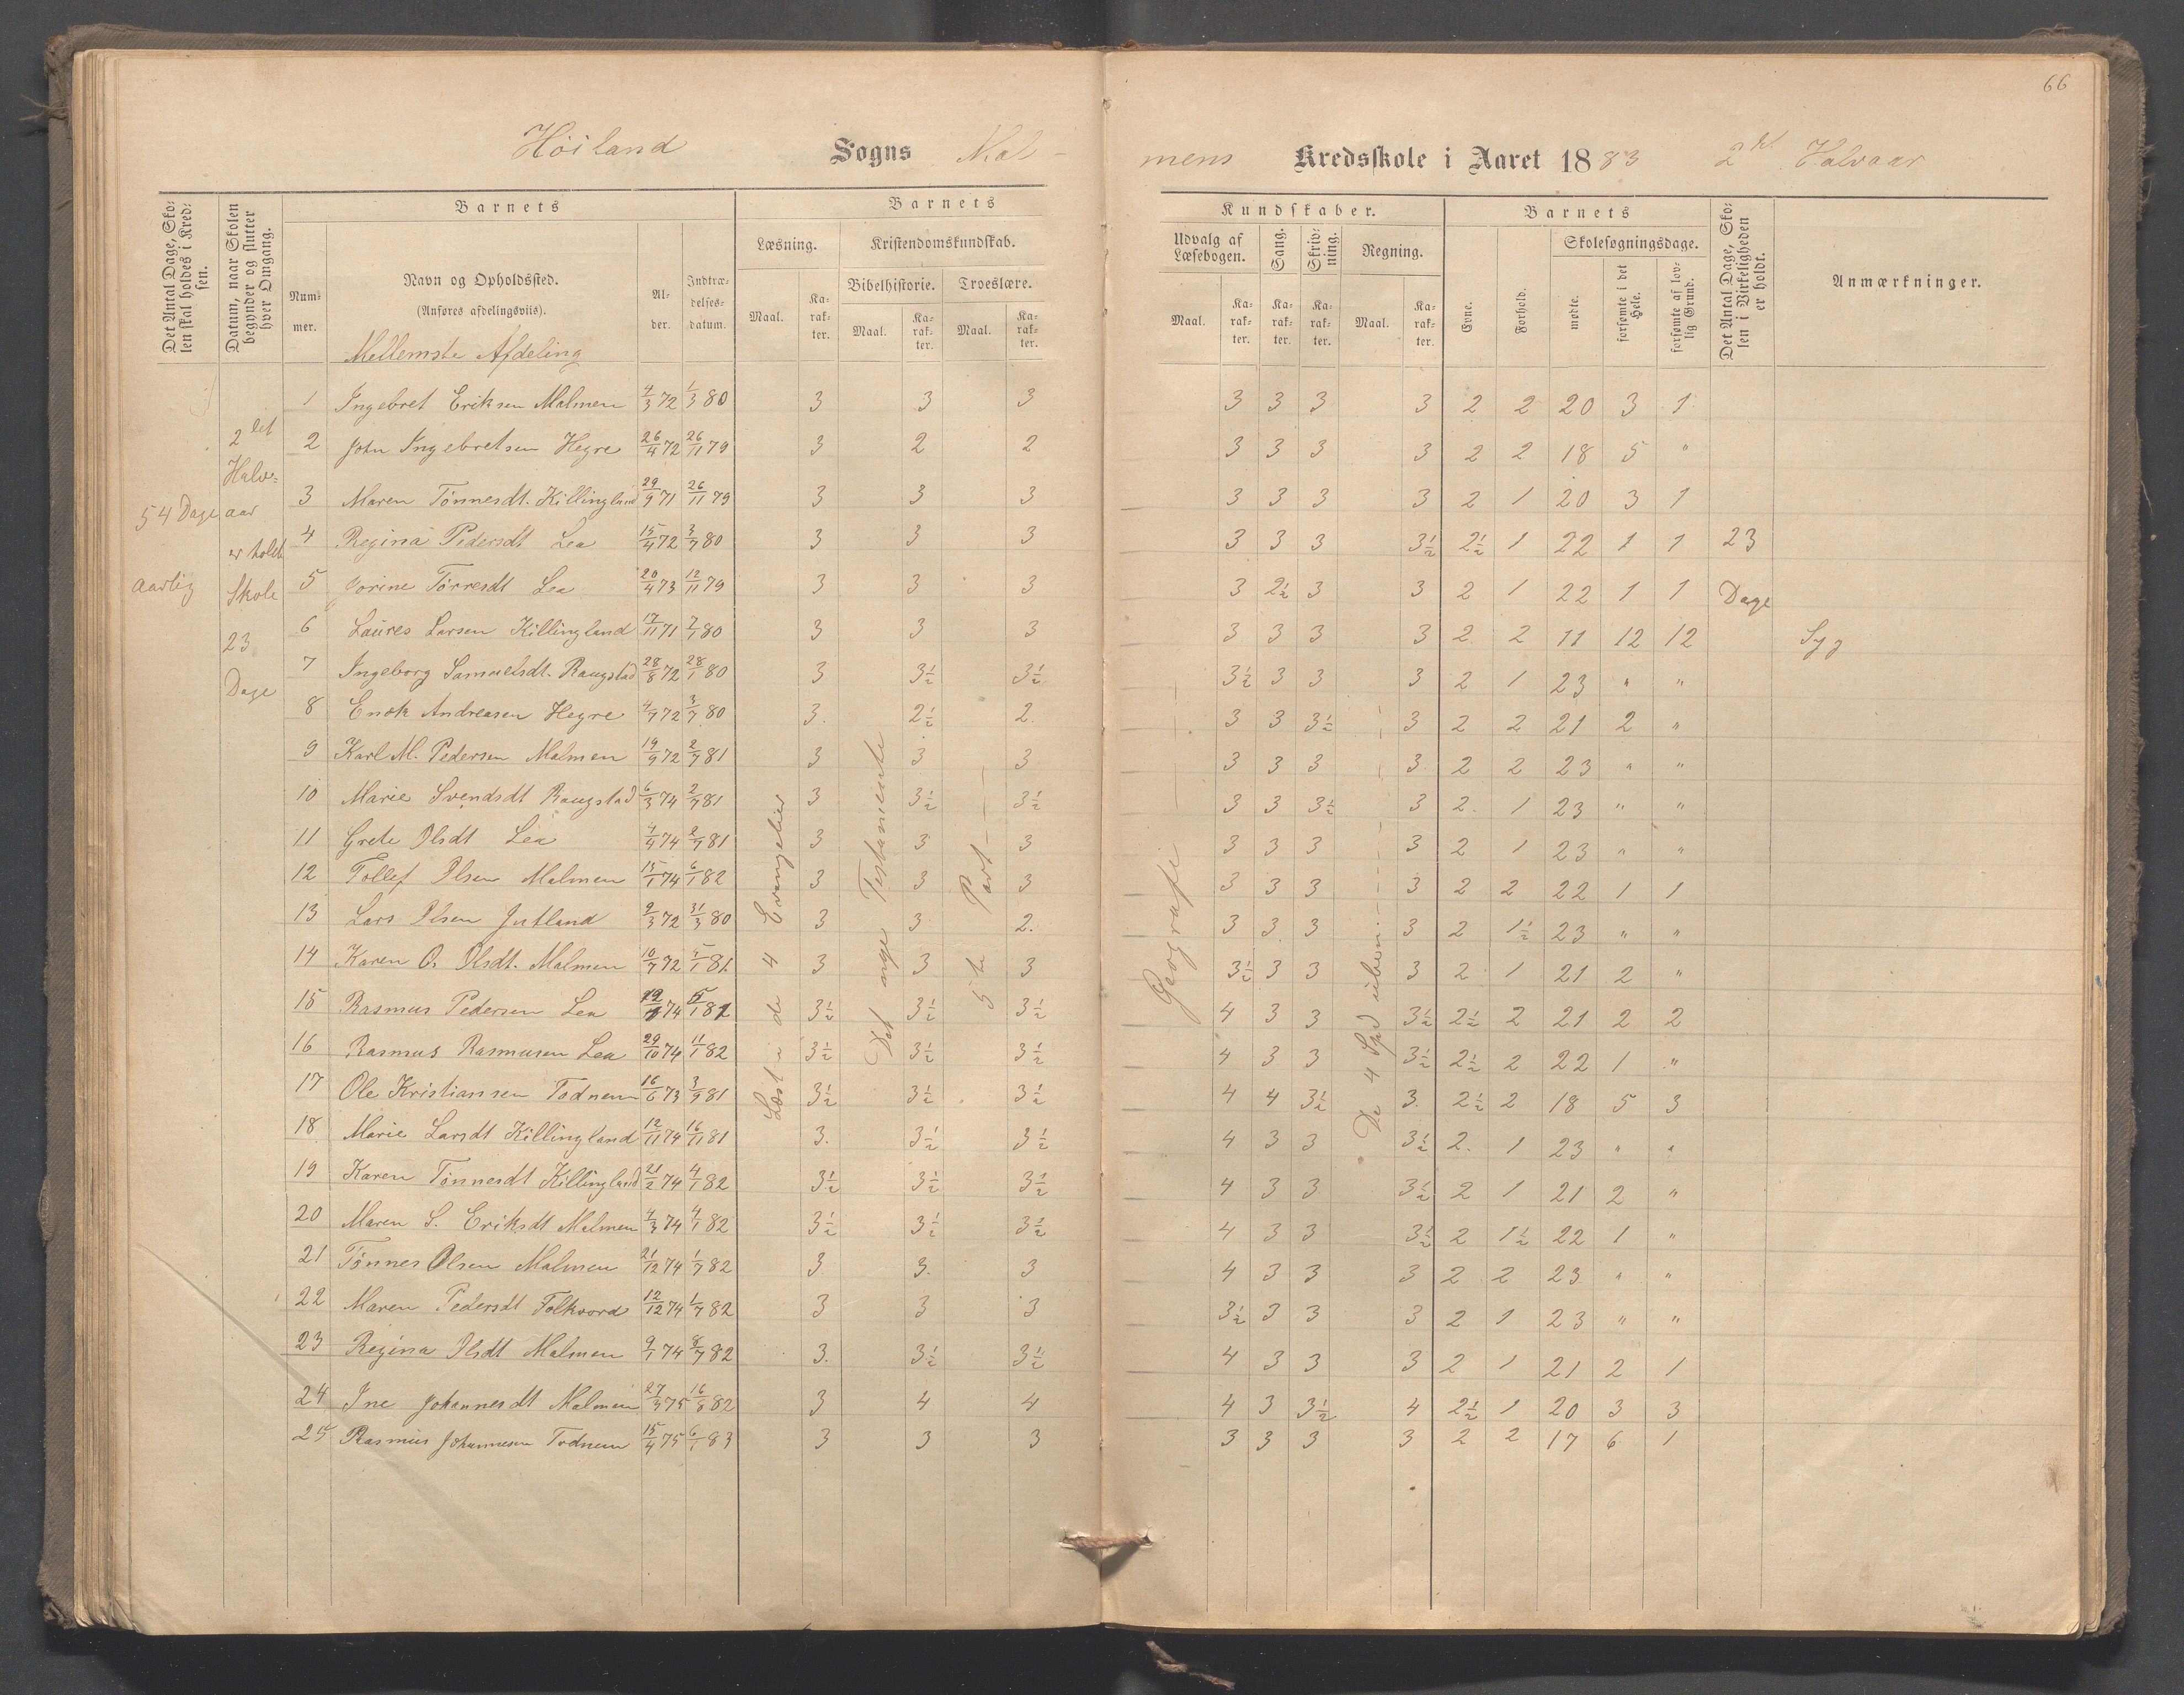 66
Höiland Sogns Mal-
mens Kredsskole i Aaret 1883 2det Halvaar
Det Antal Dage, Skolen skal holdes i Kredsen.
Datum, naar Skolen begynder og slutter hver Omgang.
Barnets
Nummer.
Navn og Opholdssted.
(Anføres afdelingsviis).
Mellemste Afdeling
Alder.
Indtrædelsesdatum.
Barnets Kundskaber.
Læsning.
Maal.
Karakter.
Kristendomskundskab.
Bibelhistorie.
Maal.
Karakter.
Troeslære.
Maal.
Karakter.
Udvalg af Læsebogen.
Maal.
Karakter.
Sang.
Karakter.
Skrivning.
Karakter.
Regning.
Maal.
Karakter.
Barnets
Evne.
Forhold.
Skolesøgningsdage.
mødte.
forsømte i det Hele.
forsømte af lovlig Grund.
Det Antal Dage, Skolen i Virkeligheden er holdt.
Anmærkninger.
54 Dage aarlig
2det Halvaar er holdt Skole 23 Dage
Læst i de 4 Evangelier
Det nye Testamente
5te Part
Geografie
De 4 Spd
23 Dage
1 Ingebret Eriksen Malmen 4/3 72 1/3 80 3 3 3 3 3 3 3 2 2 20 3 1
2 John Ingebretsen Hegre 26/4 72 26/11 79 3 2 2 3 3 3 3 2 2 18 5 "
3 Maren Tönnesdt. Killingland 29/9 71 26/11 79 3 3 3 3 3 3 3 2 1 20 3 1
4 Regina Pedersdt Lea 15/4 72 3/7 80 3 3 3 3 3 3 3½ 2½ 1 22 1 1
5 Jorine Tørresdt Lea 20/4 73 12/11 79 3 3 3 3 2½ 3 3 2 1 22 1 1
6 Laures Larsen Killingland 17/11 71 7/1 80 3 3 3 3 3 3 3 2 2 11 12 12 Syg
7 Ingeborg Samuelsdt. Raugstad 28/8 72 28/1 80 3 3½ 3½ 3½ 3 3 3 2 1 23 " "
8 Enok Andreasen Hegre 4/7 72 3/7 80 3. 2½ 2. 3 3 3½ 3 2 2 21 2 "
9 Karl M. Pedersen Malmen 19/9 72 2/7 81 3 3 3 3 3 3 3 2 2 23 " "
10 Marie Svendsdt Raugstad 6/3 74 2/7 81 3 3½ 3½ 3 3 3½ 3 2 1 23 " "
11 Grete Olsdt Lea 4/4 74 2/7 81 3 3 3 3 3 3 3 2 1 23 " "
12 Tollef Olsen Malmen 15/1 74 6/1 82 3 3 3 3 3 3 3 2 2 22 1 1
13 Lars Olsen Jutland 2/3 72 31/3 80 3 3 2. 3 3 3 3 2 1½ 23 " "
14 Karen O. Olsdt. Malmen 10/7 72 5/1 81 3 3 3 3½ 3 3 3 2 1 21 2 "
15 Rasmus Pedersen Lea 74 3½ 3½ 3½ 4 3 3 3½ 2½ 2 21 2 2
16 Rasmus Rasmusen Lea 29/10 74 11/1 82 3½ 3½ 3½ 4 3 3 3½ 2½ 2 22 1 "
17 Ole Kristiansen Todnem 16/6 73 3/9 81 3½ 3½ 3½ 4 4 3½ 3. 2½ 2 18 5 3
18 Marie Larsdt Killingland 12/11 74 16/11 81 3. 3½ 3½ 4 3 3 3½ 2. 1 23 " "
19 Karen Tönnesdt Killingland 21/2 74 4/1 82 3½ 3½ 3½ 4 3 3 3½ 2 1 21 2 "
20 Maren S. Eriksdt Malmen 4/3 74 4/1 82 3½ 3½ 3½ 4 3 3 3½ 2 1½ 22 1 "
21 Tønnes Olsen Malmen 21/12 74 1/7 82 3 3. 3 4 3 3 3 2 2 23 " "
22 Maren Pedersdt Folkvord 12/12 74 1/7 82 3 3 3 3½ 3 3 3 2 1 23 " "
23 Regina Olsdt Malmen 9/1 74 8/7 82 3. 3½ 3½ 4 3 3 3 2 1 21 2 1
24 Ine Johannesdt Malmen 27/3 75 16/8 82 3 4 4 4 3 3½ 4 2½ 1 20 3 3
25 Rasmus Johannesen Todnem 15/4 75 6/1 83 3 3 3 3 3 3 3 2 2 17 6 1